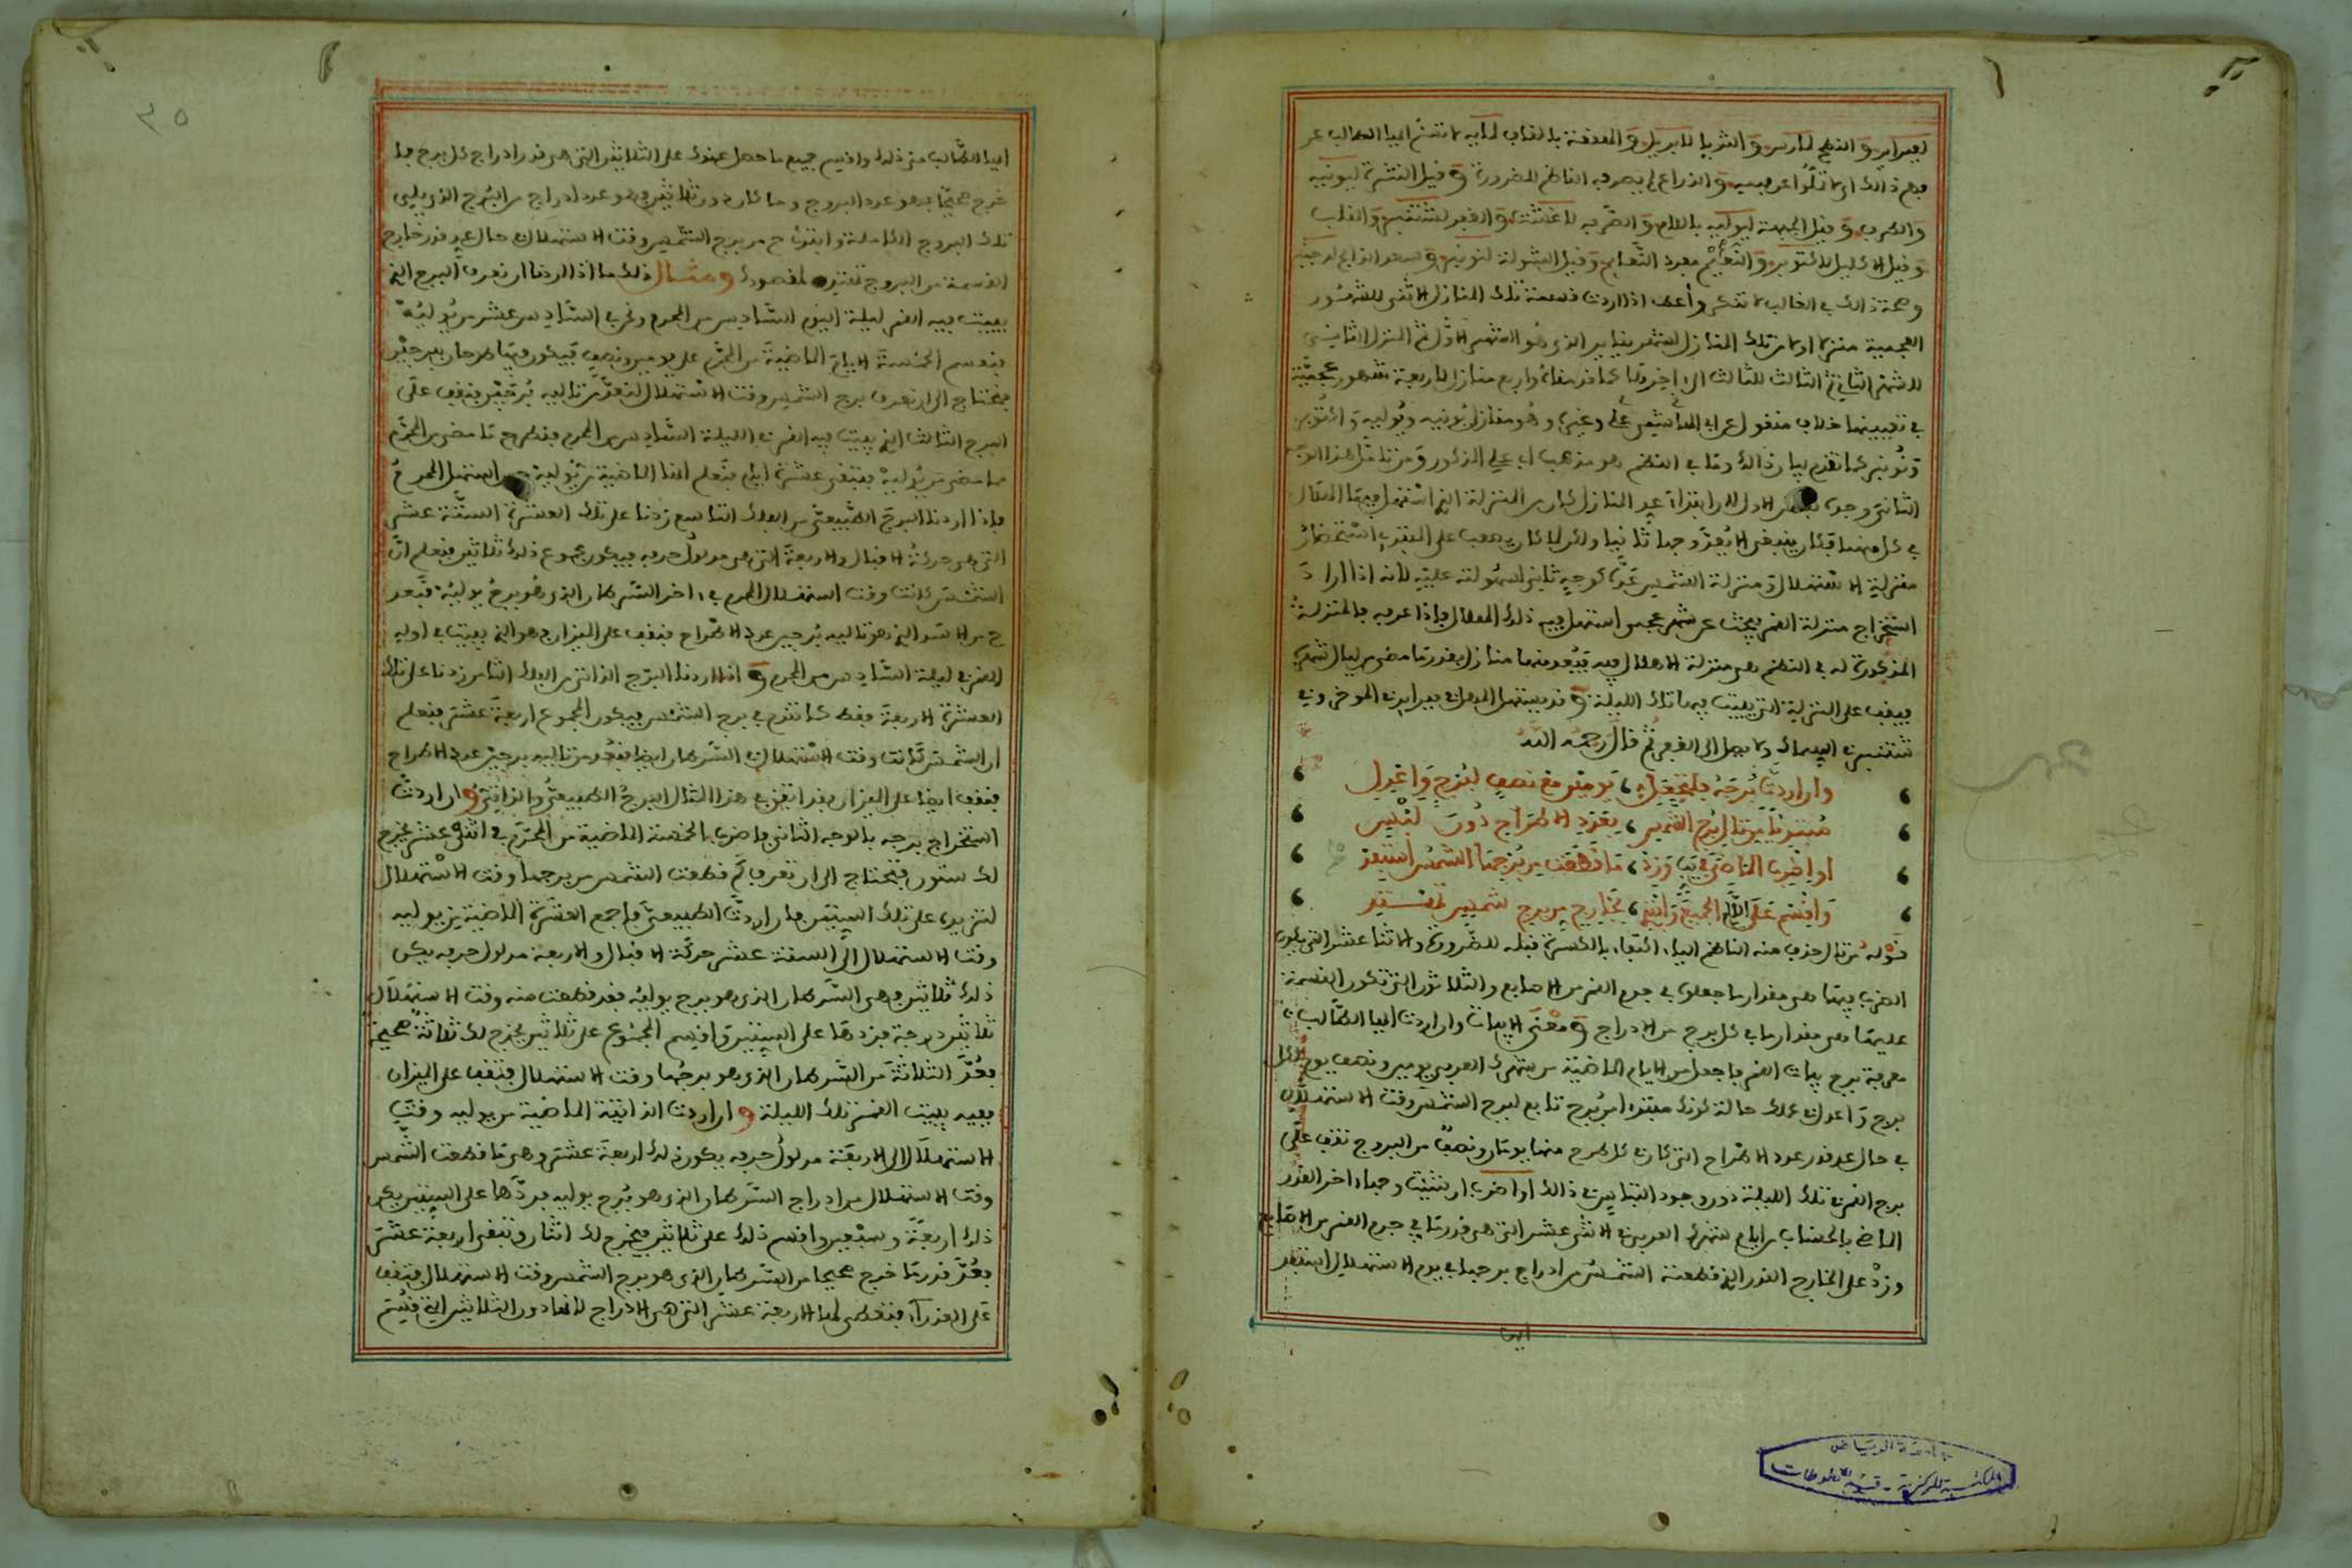 فهم ذالك اي لا تكوا عن فهمه والذراع لم يصرفه الناظم للضرورة وقيل النثرة ليونيه
والطرف وقيل الجبهة ليوليه باللام والصرفه لاغشت والغفر لشتنبر والقلب
وقيل الاكليل لاكتوبر والنعايم مفرد النعايم وقيل الشولة لنونبر وسعد الذابح لدجنبر
وصحة ذالك في الغالب لا تنكر واعلم اذا اردت قسمة تلك المنازل الاثنى للشهور
العجمية منزلة اولا من تلك المنازل لشهر يناير الذي هو الشهر الاول ثم المنزل الثاني
للشهر الثاني ثم الثالث للثالث الى اخرها
في تعيينها خلاف منقول عن ابي وغيره وهو منازل يونيه ويوليه واكتوبر
ونونبر كما تقدم بيان ذالك وما في النظم هو مذهب ابي علي المذكور ومن تامل هذا الوجه
الثاني وجده الاول لان ابتداء عد المنازل كان من المنزلة التي استهل فيها الهلال
في كل منهما فكان ينبغي الا يعد وجها ثانيا ولكن لما كان يصعب على المبتدي استحضار
منزلة الاستهلال ومنزلة الشمس عده كوجه ثاني لسهولته عليه لانه اذا اراد
استخراج منزلة القمر يبحث عن شهر عجمي استهل فيه ذلك الهلال فاذا عرفه فالمنزلة
المذكورة له في النظم هي منزلة الاهلال فيه فيعد منها منازل بقدر ما مضى من ليال شهره
فيقف على المنزلة التي يبيت فيها تلك الليلة
ثم قال رحمه الله
وان اردت برجه فلتجعل، يومين مع نصف لبرج واعدل
مبتدئا من تال برج الشمس، بعدد الاطراح دون لبس
او اضرب الماضي في يب وزد، ما قطعت من برجها الشمس استفد
واقسم على ل الجميع وابتد، بخارج من برج شمس تقتد
قوله من تال حذف منه الناظم الياء اكتفاء بالكسرة قبله للضرورة والاثنا عشر التي يكون
الضرب فيها هي مقدار ما جعلوا في جرم القمر من الاصابع والثلاثون التي تكون القسمة
عليها هي مقدار ما في كل برج من الادراج ومعنى الابيات وان اردت ايها الطالب
معرفة برج بيات القمر فاجعل من الايام الماضية من شهرك العربي يومين ونصف يوم لكل
برج واعدل في عملك حالة كونك مبتدءا من برج تابع لبرج الشمس وقت الاستهلال
في حال عد قدر عدد الاطراح التي كان في كل طرح منها يومان ونصف من البروج تقف على
برج القمر في تلك الليلة دون وجود التباس في ذالك او اضرب ان شئت وجها اخر القدر
الماضي بالحساب من ايام شهرك العربي في الاثنى عشر التي هي قدر ما في جرم القمر من الاصابع
وزد على الخارج القدر الذي قطعته الشمس من ادراج برجها في يوم الاستهلال استفد
ايها
٣٥
ايها الطالب من ذلك واقسم جميع ما حصل عندك على الثلاثين التي هي قدر ادراج كل برج فما
خرج صحيحا فهو عدد البروج وما كان دون ثلاثين فهو عدد ادراج من البرج الذي يلي
تلك البروج الكاملة وابتدئ ح من برج الشمس وقت الاستهلال حال عد قدر خارج
القسمة من البروج تقتد لمقصودك ومثال ذلك ما اذا اردنا ان نعرف البرج الذي
يبيت فيه القمر ليلة اليوم السادس من المحرم ونحن في السادس عشر من يوليه
فنقسم الخمسة الايام الماضية من المحرم على يومين ونصف فيكون فيها طرحان ببرجين
فنحتاج الى ان نعرف برج الشمس وقت الاستهلال لنعد من تاليه برجين فنقف على
البرج الثالث الذي يبيت فيه القمر في الليلة السادس من المحرم فنطرح ما مضى من المحرم
مما مضى من يوليه فتبقى عشرة ايام فنعلم انها الماضية من يوليه حين استهل المحرم
فاذا اردنا البرج الطبيعي من الفلك التاسع زدنا على تلك العشرة الستة عشر
التي هي حركة الاقبال والاربعة التي هي مدلول حرفه فيكون مجموع ذلك ثلاثين فنعلم ان
الشمس كانت وقت استهلال المحرم في اخر السرطان الذي هو برج يوليه فنعد
ح من الاسد الذي هو تاليه برجين عدد الاطراح فنقف على الميزان هو الذي يبيت في اوله
القمر في ليلة السادس من المحرم واذا اردنا البرج الذاتي من الفلك الثامن زدنا على تلك
العشرة الاربعة فقط كما تقدم في برج الشمس فيكون المجموع اربعة عشر فنعلم
ان الشمس كانت وقت الاستهلال في السرطان ايضا فنعد من تاليه برجين عدد الاطراح
فنقف ايضا على الميزان فقد اتفق في هذا المثال البرج الطبيعي والذاتي وان اردت
استخراج برجه بالوجه الثاني فاضرب الخمسة الماضية من المحرم في اثني عشر يخرج
لك ستون فتحتاج الى ان تعرف كم قطعت الشمس من برجها وقت الاستهلال
لتزيده على تلك الستين فان اردت الطبيعي فاجمع العشرة الماضية من يوليه
وقت الاستهلال الى الستة عشر حركة الاقبال والاربعة مدلول حرفه يكن
ذلك ثلاثين وهي السرطان الذي هو برج يوليه فقد قطعت منه وقت الاستهلال
ثلاثين درجة فزدها على الستين واقسم المجموع على ثلاثين يخرج لك ثلاثة صحيحة
فعد الثلاثة من السرطان الذي هو برجها وقت الاستهلال فتقف على الميزان
ففيه يبيت القمر تلك الليلة وان اردت الذاتي الماضية من يوليه وقت
الاستهلال الى الاربعة مدلول حرفه يكون ذلك اربعة عشر وهي ما قطعت الشمس
وقت الاستهلال من ادراج السرطان الذي هو برج يوليه فزدها على الستين يكن
ذلك اربعة وسبعين واقسم ذلك على ثلاثين فيخرج لك اثنان وتبقى اربعة عشر
فعد قدر ما خرج صحيحا من السرطان الذي هو برج الشمس وقت الاستهلال فتقف
جامعة الرياض
المكتبة المركزية - قسم المخطوطات